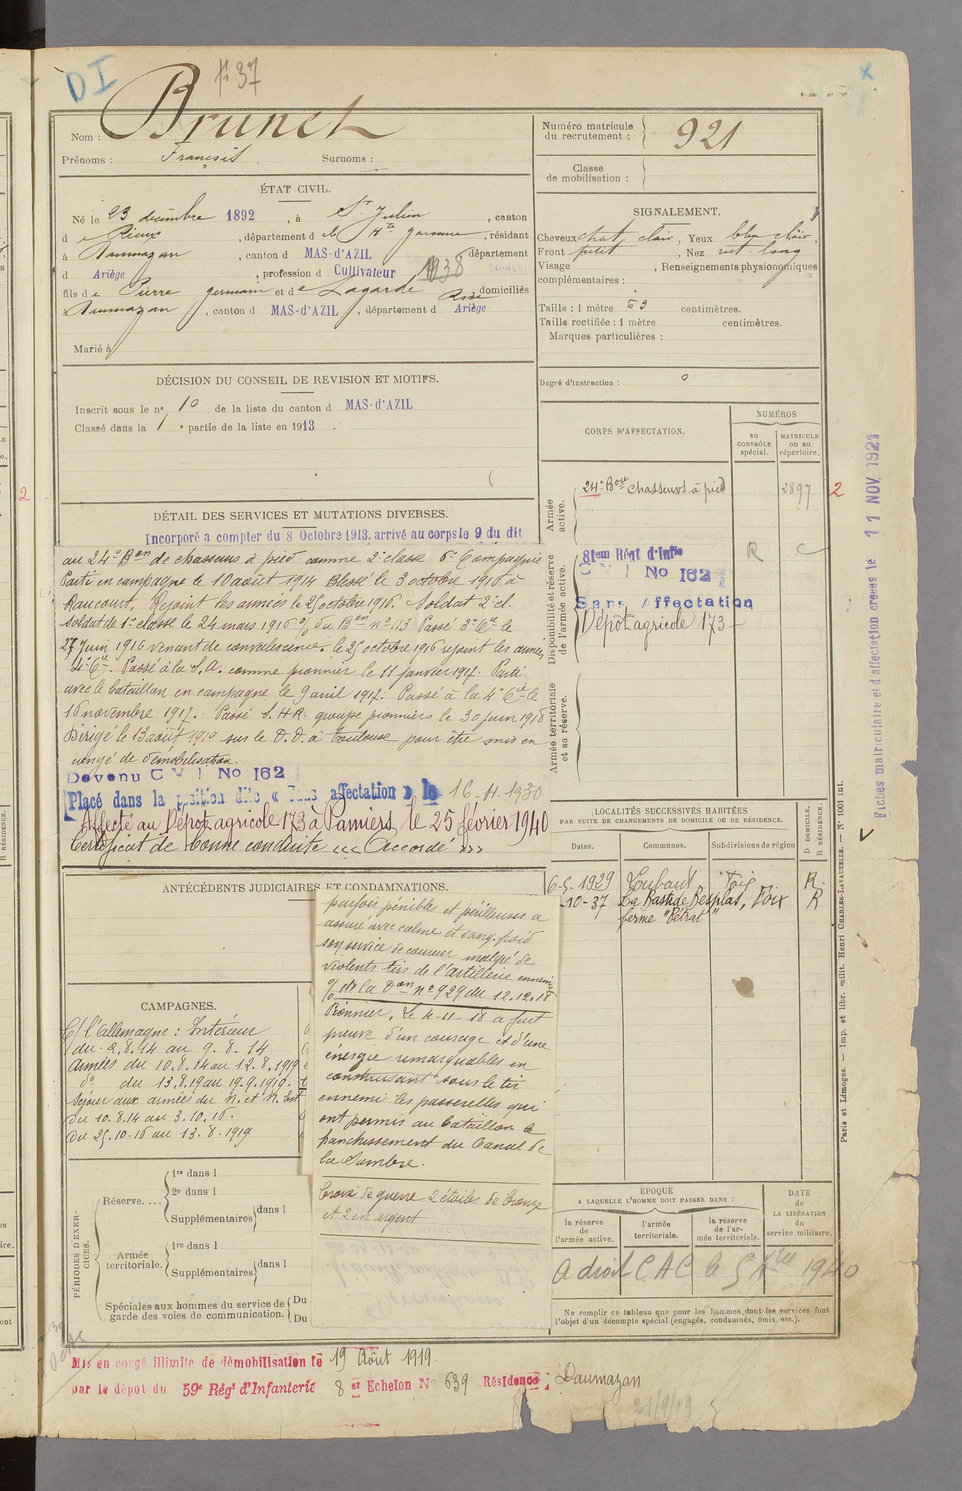 DI
p. 37
Nom : Brunet
Prénoms : François. Surnoms :
Numéro matricule
du recrutement : 921
Classe
de mobilisation :
ÉTAT CIVIL.
Né le 23 décembre 1892, à St Julien, canton
de Rieux, département de la Hte Garonne, résidant
à Daumazan, canton d MAS-d'AZIL département
d Ariège, profession d Cultivateur
fils de Pierre germain et de Lagarde Rose domiciliés
Daumazan, canton d MAS-d'AZIL, département d Ariège
Marié à
SIGNALEMENT.
Cheveux chat clair, Yeux bleu clair,
Front petit, Nez rect long
Visage , Renseignements physionomiques
complémentaires :
Taille : 1 mètre 53 centimètres.
Taille rectifiée : 1 mètre centimètres.
Marques particulières :
Degré d'instruction : 0
DÉCISION DU CONSEIL DE REVISION ET MOTIFS.
Inscrit sous le no 10 de la liste du canton d MAS-d'AZIL
Classé dans la 1e partie de la liste en 1913.
CORPS D'AFFECTATION.
NUMÉROS
au
CONTRÔLE
spécial.
MATRICULE
ou au
répertoire.
Armée
active.
24e Bon Chasseurs à pied 2897
2
2
Disponibilité et réserve
de l'armée active.
R
C M I No 162
Sans Affectation
Dépôt agricole 173
Armée territoriale
et sa réserve.
Fiches matriculaire et d'affectation créées le 11 NOV 1921
DÉTAIL DES SERVICES ET MUTATIONS DIVERSES.
Incorporé a compter du 8 Octobre 1913. arrivé au corps le 9 du dit
au 24e Bon de chasseurs à pied comme 2e classe 6e Compagnie
Parti en campagne le 10 août 1914 Blessé le 3 octobre 1916 à
Rancourt. Rejoint les armées le 25 octobre 1916. Soldat 2e cl.
Soldat de 1e classe le 24 mars 1916 o/ du Bon no 113 Passé 3e Cie le
27 Juin 1916 venant de convalescence. le 25 octobre 1916 rejoint les armées
4e Cie. Passé à la S.A. comme pionnier le 11 janvier 1917. Parti
avec le bataillon en campagne le 9 avril 1917. Passé à la 4e Cie le
16 novembre 1917. Passé S.H.R. groupe pionniers le 30 juin 1918
Dirigé le 13 août 1919 sur le D.D. à Toulouse pour être mis en
congé de démobilisation.
Devenu C M I No 162
Placé dans la position dite « Sans affectation » le 16-4-1930
Affecté au Dépôt agricole 173 à Pamiers, le 25 février 1940
Certificat de bonne conduite «« Accordé »»
LOCALITÉS SUCCESSIVES HABITÉES
PAR SUITE DE CHANGEMENTS DE DOMICILE OU DE RÉSIDENCE.
Dates. Communes. Subdivisions de région
D DOMICILE.
R RÉSIDENCE.
6-5-1929 Loubaut Foix R.
-10-37 La Bastide Besplas, Foix R
ferme "Pétrat"
ANTÉCÉDENTS JUDICIAIRES ET CONDAMNATIONS.
parfois pénible et périlleuse a
assuré avec calme et sang-froid
son service de coureur malgré de
violents tirs de l'artillerie ennemie
o/ de la Don no 929 du 12.12.18
Pionnier, Le 4-11-18 a fait
preuve d'un courage et d'une
énergie remarquables en
construisant sous le tir
ennemi les passerelles qui
ont permis au bataillon le
franchissement du Canal de
la Sambre.
Croix de guerre 2 étoiles de bronze
et 2 en argent
CAMPAGNES.
C/ l'Allemagne : Intérieur
du 2.8.14 au 9.8.14
Armées du 10.8.14 au 12.8.1919
do du 13.8.19 au 19.9.1919.
Séjour aux armées du N. et N. Est
du 10.8.14 au 3.10.16.
Du 25.10.16 au 13.8.1919
PÉRIODES D'EXERCICES.
Réserve....
1re dans l
2e dans l
Supplémentaires dans l
Armée
territoriale.
1re dans l
Supplémentaires dans l
Spéciales aux hommes du service de
garde des voies de communication.
Du
Du
ÉPOQUE
A LAQUELLE L'HOMME DOIT PASSER DANS :
la réserve
de l'armée active.
l'armée
territoriale.
la réserve
de l'ar-
mée territoriale.
DATE
de
LA LIBÉRATION
du
service militaire.
A droit CAC le 5 1940
Ne remplir ce tableau que pour les hommes dont les services font
l'objet d'un décompte spécial (engagés, condamnés, omis, etc.).
Paris et Limoges. — Imp. et libr. milit. Henri CHARLES-LAVAUZELLE. — N° 1001 int.
Mis en congé illimité de démobilisation le 19 Août 1919.
par le dépot du 59e Régt d'Infanterie 8 er Echelon No 639 Résidence : Daumazan